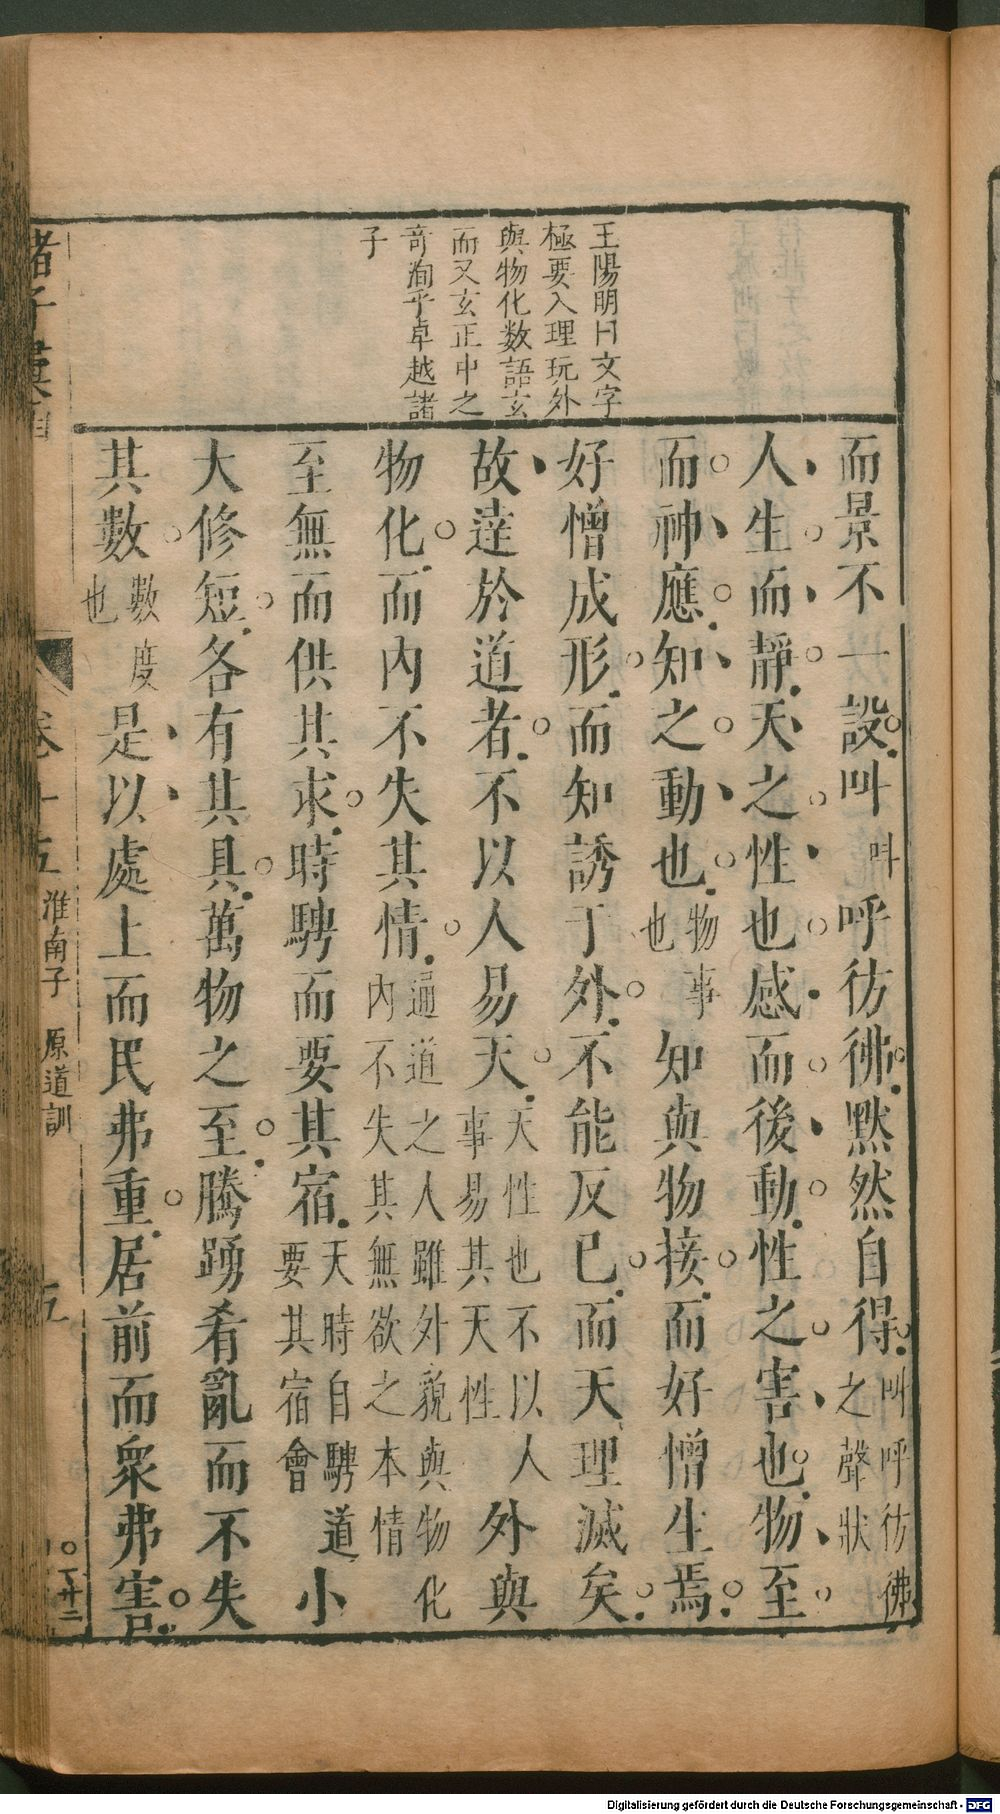 王陽明曰文字
極要入理玩外
與物化数語玄
而又玄正中之
奇洵乎卓越諸
子
而景不一設叫叫呼彷彿黙然自得叫呼彷彿之聲狀
人生而靜天之性也感而後動性之害也物至
而神應知之動也物事也知與物接而好憎生焉
好憎成形而知誘于外不能反已而天理滅矣
故達於道者不以人易天天性也不以人事易其天性外與
物化而內不失其情通道之人雖外貌與物化內不失其無欲之本情
至無而供其求時騁而要其宿天時自騁道要其宿會小
大修短各有其具萬物之至騰踴肴亂而不失
其數數度也是以處上而民弗重居前而衆弗害
諸子彙函
卷十五
淮南子 原道訓
五
Digitalisierung gefördert durch die Deutsche Forschungsgemeinschaft - DFG